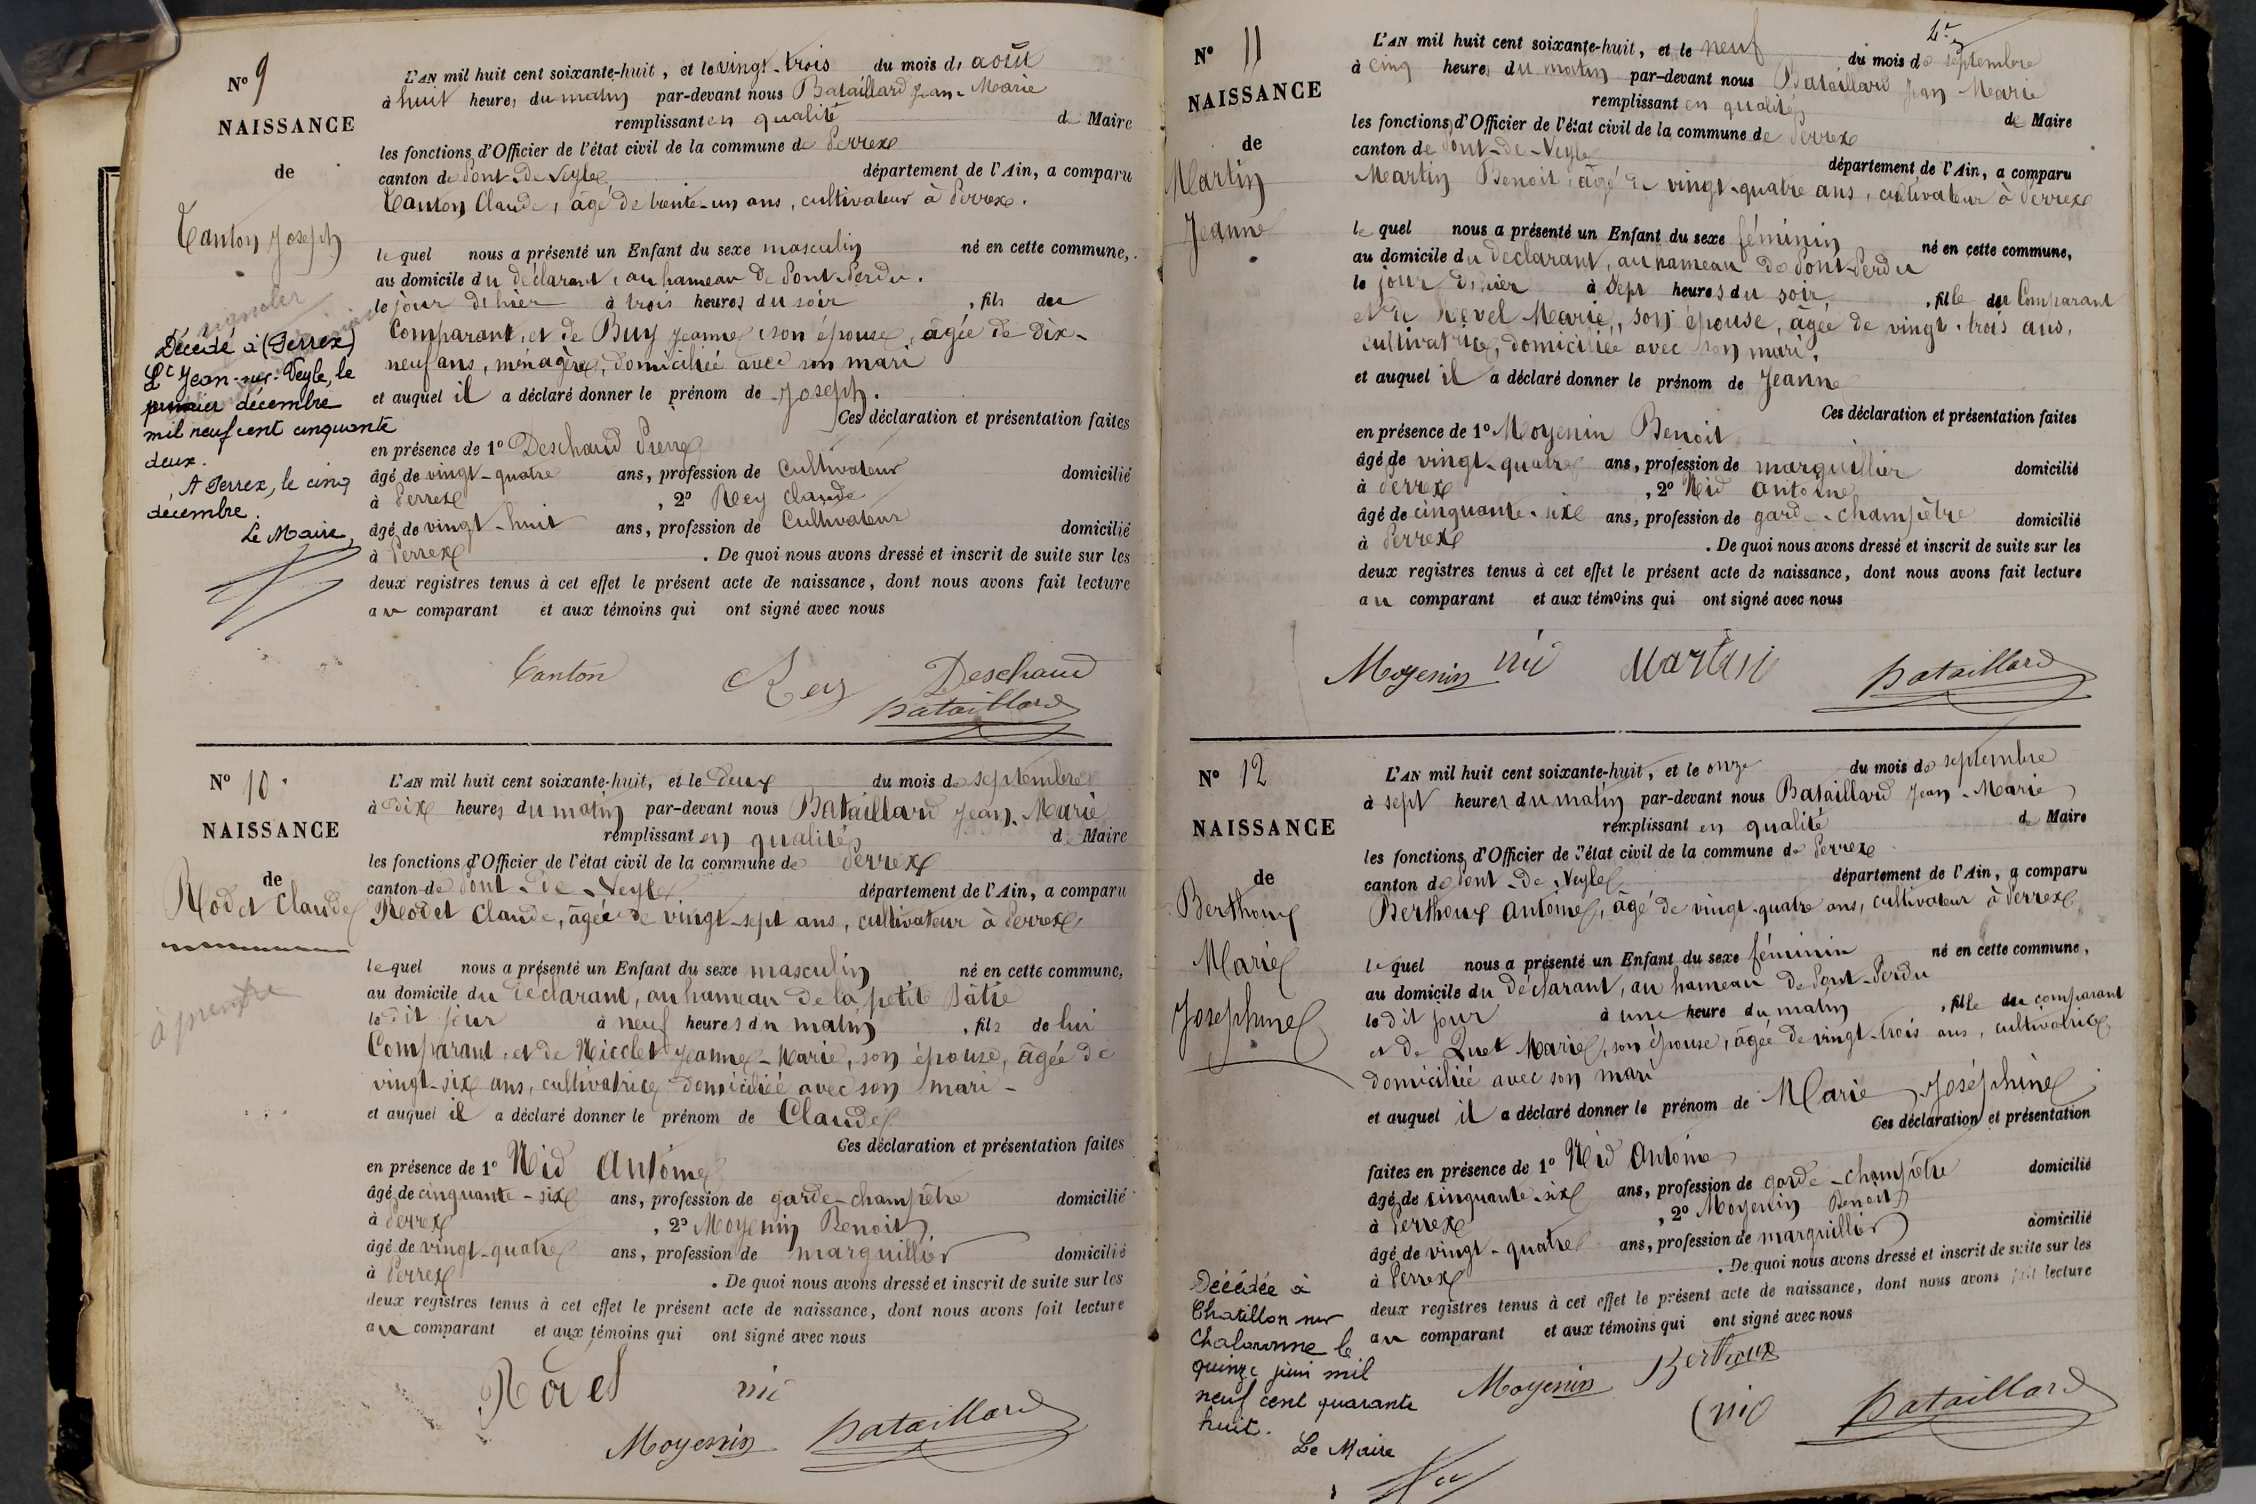 N° 9
NAISSANCE
de
Tanton Joseph
Décédé à (Perrex)
St Jean-sur-Veyle, le
premier décembre
mil neuf cent cinquante
deux.
A Perrex, le cinq
décembre.
Le Maire,
L'AN mil huit cent soixante-huit, et le vingt-trois du mois de août
à huit heures du matin par-devant nous Bataillard Jean-Marie
remplissant en qualité de Maire
les fonctions d'Officier de l'état civil de la commune de Perrex
canton de Pont-de-Veyle département de l'Ain, a comparu
Tanton Claude, âgé de trente-un ans, cultivateur à Perrex.
lequel nous a présenté un Enfant du sexe masculin né en cette commune,
au domicile du déclarant, au hameau de Pont-Perdu.
le jour d'hier à trois heures du soir, fils du
Comparant, et de Buy Jeanne, son épouse, âgée de dix-
neuf ans, ménagère, domiciliée avec son mari
et auquel il a déclaré donner le prénom de Joseph.
Ces déclaration et présentation faites
en présence de 1° Deschaud Pierre
âgé de vingt-quatre ans, profession de cultivateur domicilié
à Perrex, 2° Rey Claude
âgé de vingt-huit ans, profession de Cultivateur domicilié
à Perrex. De quoi nous avons dressé et inscrit de suite sur les
deux registres tenus à cet effet le présent acte de naissance, dont nous avons fait lecture
au comparant et aux témoins qui ont signé avec nous
Tanton Rey Deschaud
Bataillard
N° 10.
NAISSANCE
de
Rodet Claude
à prendre
L'AN mil huit cent soixante-huit, et le deux du mois de septembre
à dix heures du matin par-devant nous Bataillard Jean-Marie
remplissant en qualité de Maire
les fonctions d'Officier de l'état civil de la commune de Perrex
canton de Pont-de-Veyle département de l'Ain, a comparu
Rodet Claude, âgée de vingt-sept ans, cultivateur à Perrex
lequel nous a présenté un Enfant du sexe masculin né en cette commune,
au domicile du déclarant, au hameau de la petite Bâtie
le dit jour à neuf heures du matin, fils de lui
Comparant, et de Nicolet Jeanne-Marie, son épouse, âgée de
vingt-six ans, cultivatrice domiciliée avec son mari-
et auquel il a déclaré donner le prénom de Claude
Ces déclaration et présentation faites
en présence de 1° Nid Antoine
âgé de cinquante-six ans, profession de garde-champêtre domicilié
à Perrex, 2° Moyenin Benoit
âgé de vingt-quatre ans, profession de marguillier domicilié
à Perrex. De quoi nous avons dressé et inscrit de suite sur les
deux registres tenus à cet effet le présent acte de naissance, dont nous avons fait lecture
au comparant et aux témoins qui ont signé avec nous
Rodet nid
Moyenin Bataillard
N° 11
NAISSANCE
de
Martin
Jeanne
L'AN mil huit cent soixante-huit, et le neuf du mois de septembre
à cinq heures du matin par-devant nous Bataillard Jean Marie
remplissant en qualité de Maire
les fonctions d'Officier de l'état civil de la commune de Perrex
canton de Pont-de-Veyle département de l'Ain, a comparu
Martin Benoit, âgé de vingt-quatre ans, cultivateur à Perrex
lequel nous a présenté un Enfant du sexe féminin né en cette commune,
au domicile du déclarant, au hameau de Pont-Perdu
le jour d'hier à sept heures du soir, fille du Comparant
et de Revel Marie, son épouse, âgée de vingt-trois ans,
cultivatrice, domiciliée avec son mari.
et auquel il a déclaré donner le prénom de Jeanne
Ces déclaration et présentation faites
en présence de 1° Moyenin Benoit
âgé de vingt-quatre ans, profession de marguillier domicilié
à Perrex, 2° Nid antoine
âgé de cinquante-six ans, profession de garde-champêtre domicilié
à Perrex. De quoi nous avons dressé et inscrit de suite sur les
deux registres tenus à cet effet le présent acte de naissance, dont nous avons fait lecture
au comparant et aux témoins qui ont signé avec nous
Moyenin nid Martin Bataillard
N° 12
NAISSANCE
de
Berthoux
Marie
Josephine
Décédée à
Chatillon sur
Chalaronne le
quinze juin mil
neuf cent quarante
huit.
Le Maire
L'AN mil huit cent soixante-huit, et le onze du mois de septembre
à sept heures du matin par-devant nous Bataillard Jean-Marie
remplissant en qualité de Maire
les fonctions d'Officier de l'état civil de la commune de Perrex
canton de Pont-de-Veyle département de l'Ain, a comparu
Berthoux antoine, âgé de vingt-quatre ans, cultivateur à Perrex
lequel nous a présenté un Enfant du sexe féminin né en cette commune,
au domicile du déclarant, au hameau de Pont-Perdu
le dit jour à une heure du matin, fille du comparant
et de Quet Marie, son épouse, âgée de vingt-trois ans, cultivatrice
domiciliée avec son mari
et auquel il a déclaré donner le prénom de Marie Joséphine
Ces déclaration et présentation
faites en présence de 1° Nid Antoine
âgé de cinquante-six ans, profession de garde-champêtre domicilié
à Perrex, 2° Moyenin Benoit
âgé de vingt-quatre ans, profession de marguillier domicilié
à Perrex. De quoi nous avons dressé et inscrit de suite sur les
deux registres tenus à cet effet le présent acte de naissance, dont nous avons fait lecture
au comparant et aux témoins qui ont signé avec nous
Moyenin Berthoux
nid Bataillard